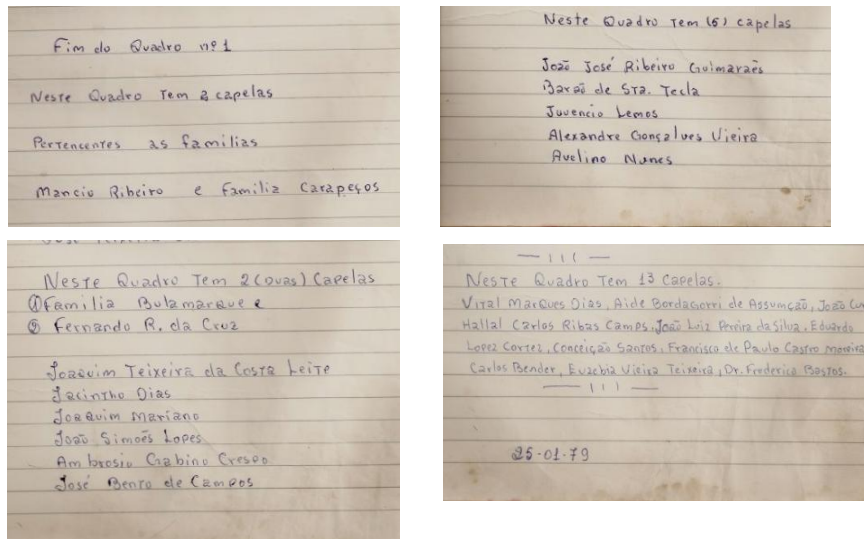 Fim do Quadro nº 1
Neste Quadro Tem 2 capelas
Pertencentes as familias
Mancio Ribeiro e familia Carapeços
Neste Quadro Tem (5) capelas
João José Ribeiro Guimaraẽs
Barão de Sta. Tecla
Juvencio Lemos
Alexandre Gonçalves Vieira
Avelino Nunes
Neste Quadro Tem 2 (Duas) Capelas
① Familia Bulamarque e
② Fernando R. da Cruz
Joaquim Teixeira da Costa Leite
Jacintho Dias
Joaquim Mariano
João Simoẽs Lopes
Ambrosio Gabino Crespo
José Bento de Campos
Neste Quadro Tem 13 Capelas.
Vital Marques Dias, Aide Bordagorri de Assumção, João
Hallal Carlos Ribas Campos, João Luiz Pereira da Silva, Eduardo
Lopez Cortez, Conceição Santos, Francisco de Paulo Castro Moreira
Carlos Bender, Euzebia Vieira Teixeira, Dr. Frederico Bastos.
25-01-79